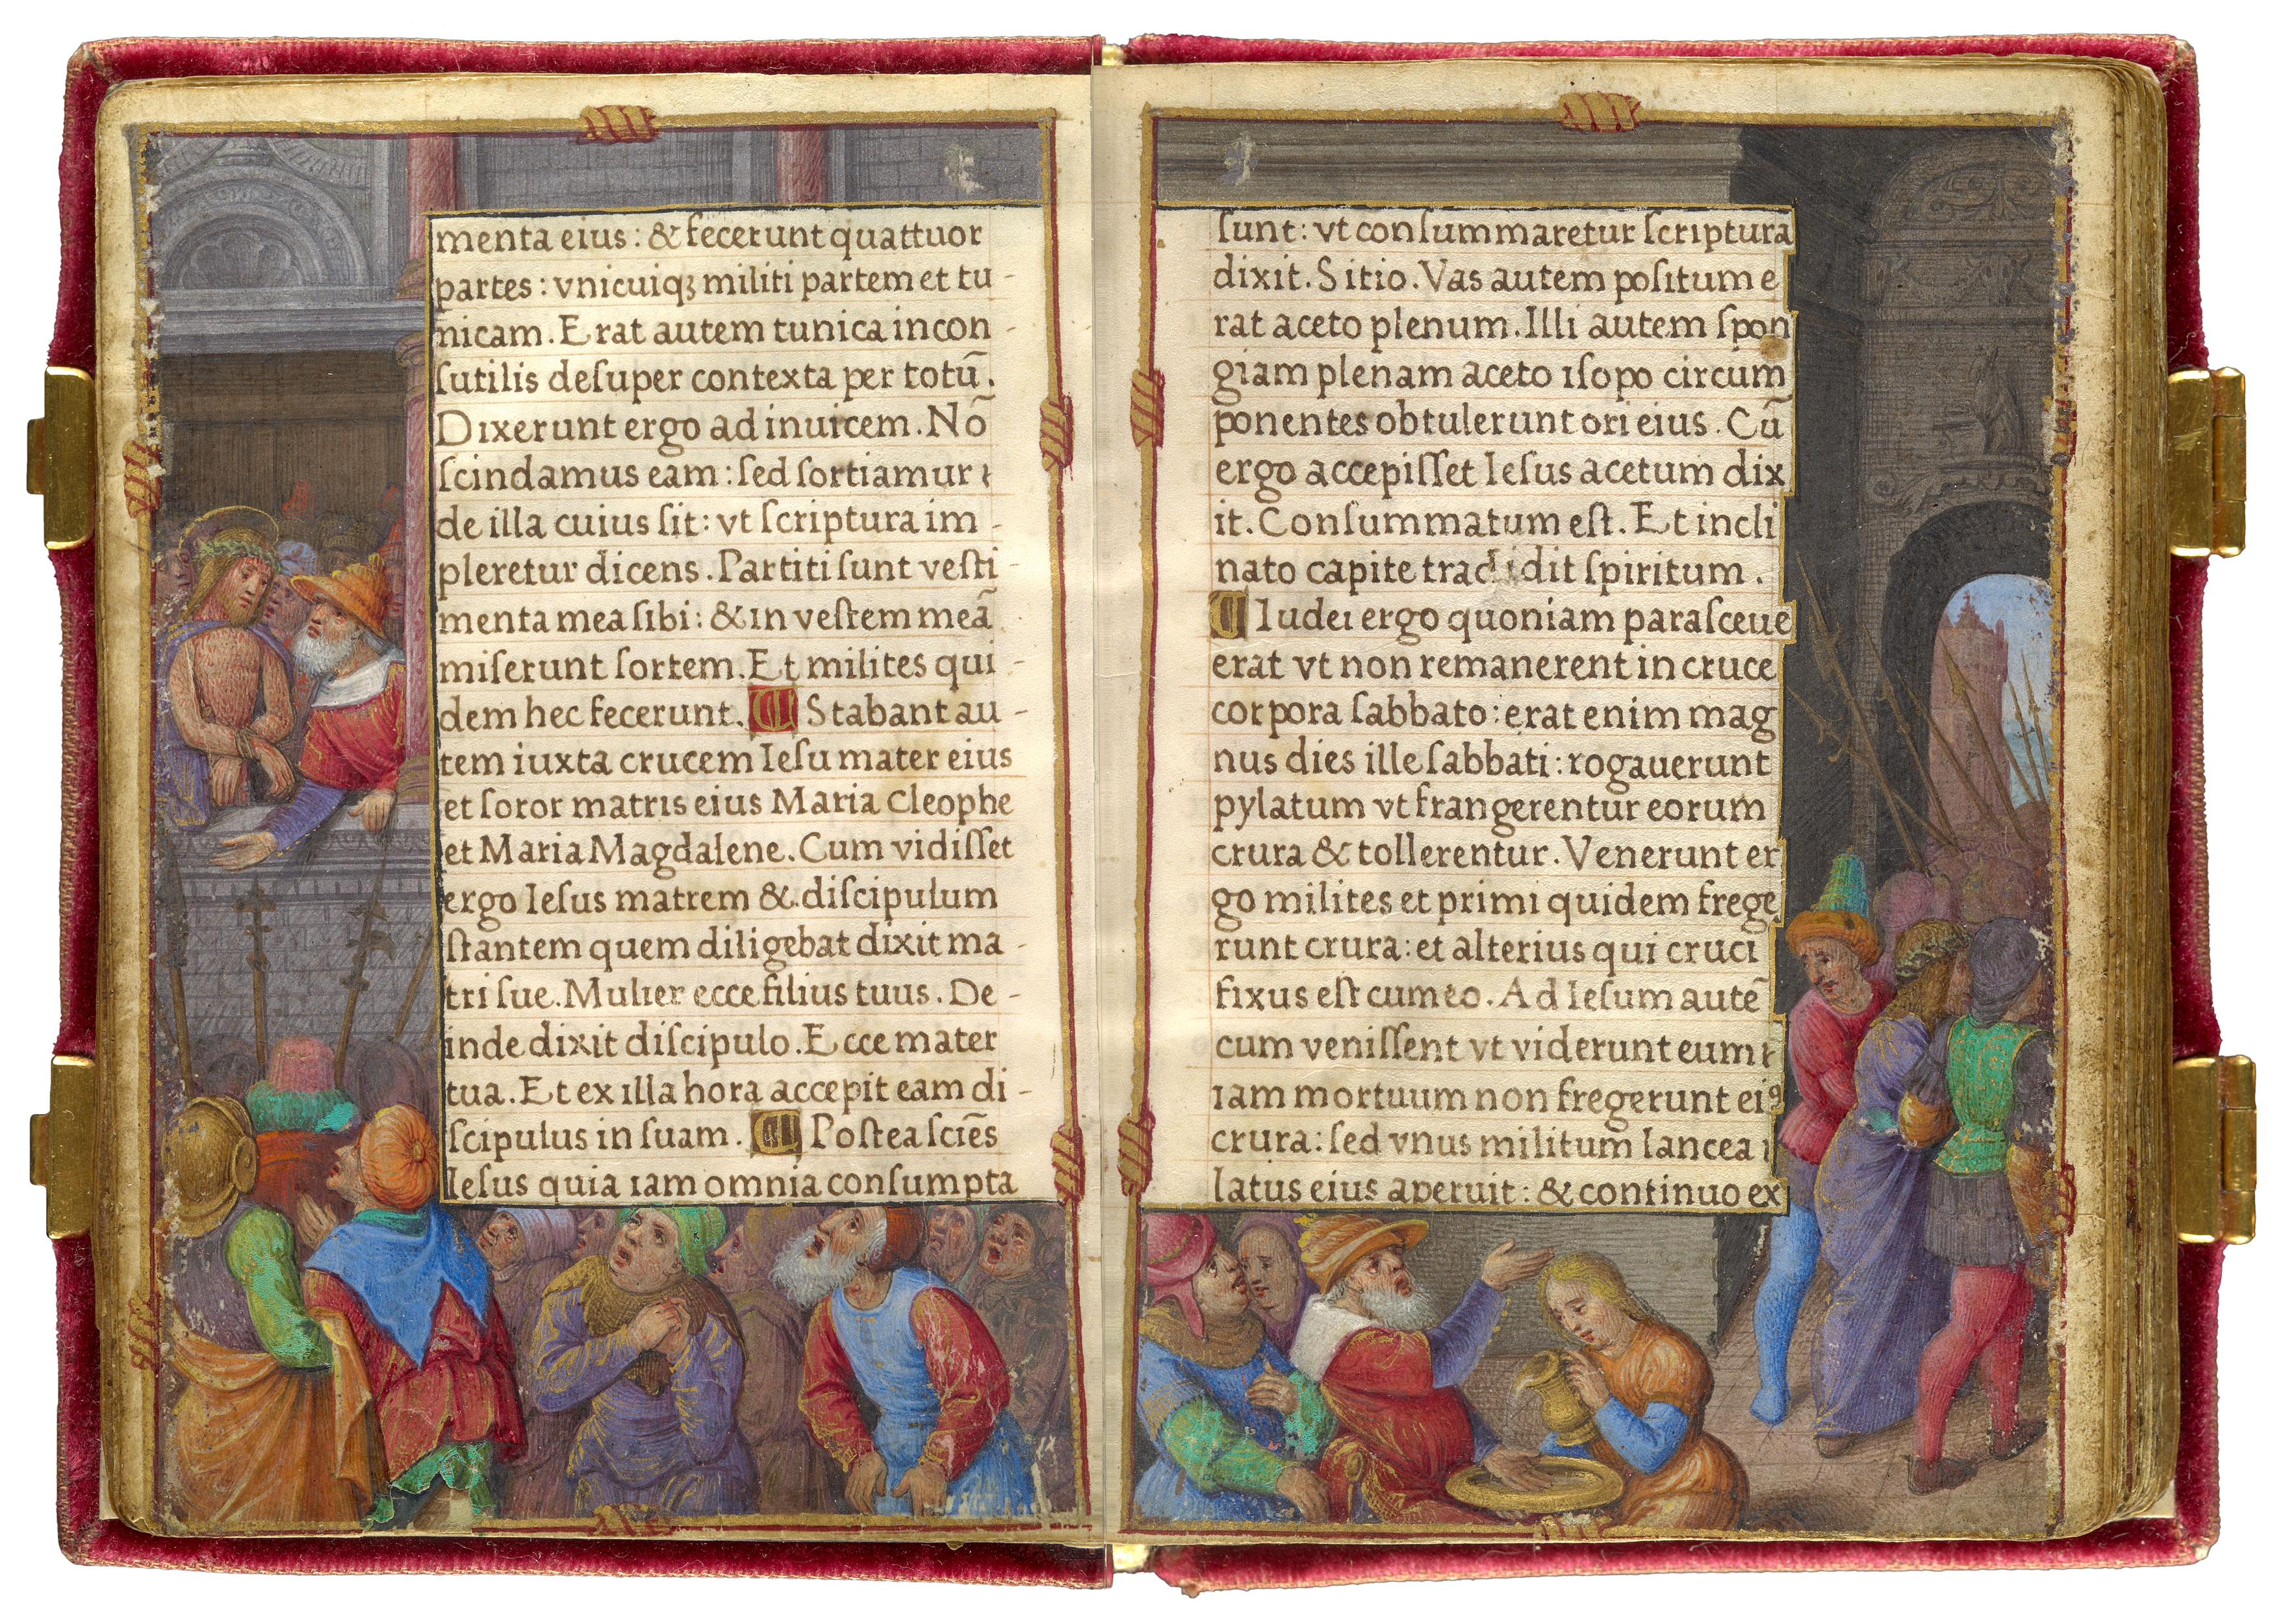 menta eius: & fecerunt quattuor
partes: vnicuiqꝫ militi partem et tu-
nicam. Erat autem tunica incon-
ſutilis deſuper contexta per totū.
Dixerunt ergo ad inuicem. Nō
ſcindamus eam: ſed ſortiamur
de illa cuius ſit: vt ſcriptura im-
pleretur dicens. Partiti ſunt veſti-
menta mea ſibi: & in veſtem meā
miſerunt ſortem. Et milites qui-
dem hec fecerunt. Stabant au-
tem iuxta crucem Ieſu mater eius
et ſoror matris eius Maria Cleophe
et Maria Magdalene. Cum vidiſſet
ergo Ieſus matrem & diſcipulum
ſtantem quem diligebat dixit ma-
tri ſue. Mulier ecce filius tuus. De-
inde dixit diſcipulo. Ecce mater
tua. Et ex illa hora accepit eam di-
ſcipulus in ſuam. Poſtea ſciēs
Ieſus quia iam omnia conſumpta
ſunt: vt conſummaretur ſcriptura
dixit. Sitio. Vas autem poſitum e
rat aceto plenum. Illi autem ſpon
giam plenam aceto iſopo circum
ponentes obtulerunt ori eius. Cū
ergo accepiſſet Ieſus acetum dix
it. Conſummatum eſt. Et incli
nato capite tradidit ſpiritum.
Iudei ergo quoniam paraſceue
erat vt non remanerent in cruce
corpora ſabbato: erat enim mag
nus dies ille ſabbati: rogauerunt
pylatum vt frangerentur eorum
crura & tollerentur. Venerunt er
go milites et primi quidem frege
runt crura: et alterius qui cruci
fixus eſt cum eo. Ad Ieſum autē
cum veniſſent vt viderunt eum
iam mortuum non fregerunt eiꝰ
crura: ſed vnus militum lancea
latus eius aperuit: & continuo ex